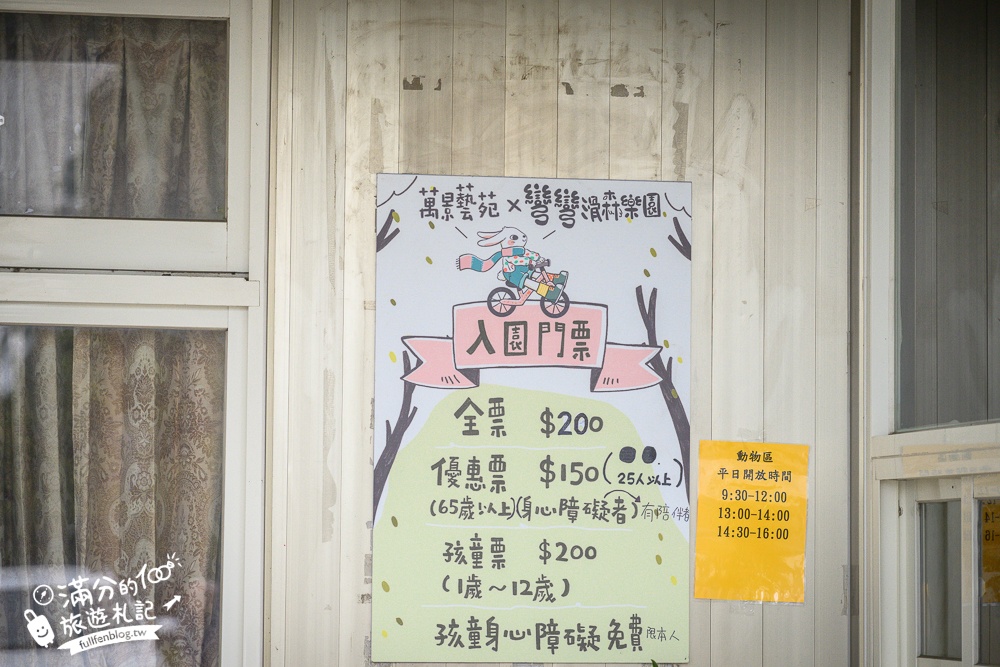 萬景藝苑×彎彎滑森樂園
入園門票
全票 $200
優惠票 $150(25人以上)
(65歲以上)(身心障礙者)有陪伴者
孩童票 $200
(1歲~12歲)
孩童身心障礙免費限本人
動物區
平日開放時間
9:30-12:00
13:00-14:00
14:30-16:00
滿分的100
旅遊札記
fullfenblog.tw